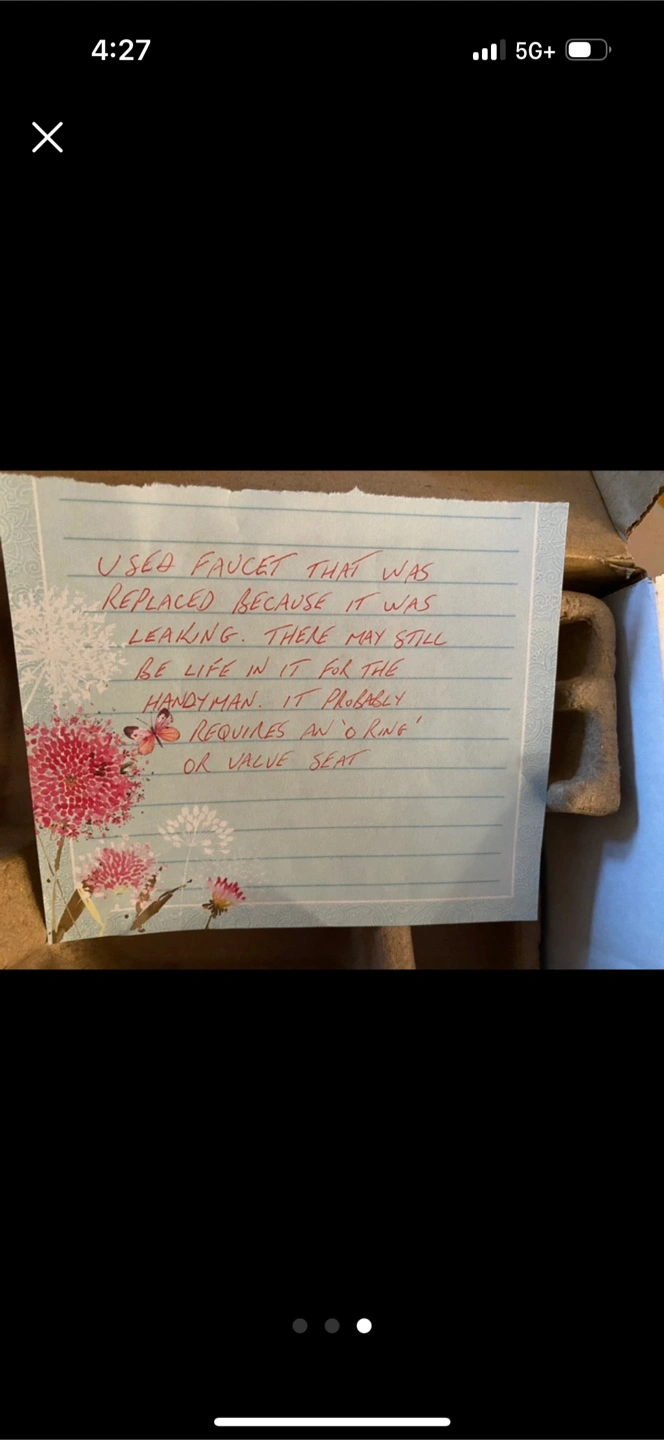 4:27
5G+
USED FAUCET THAT WAS
REPLACED BECAUSE IT WAS
LEAKING. THERE MAY STILL
BE LIFE IN IT FOR THE
HANDYMAN. IT PROBABLY
REQUIRES AN 'O RING'
OR VALVE SEAT